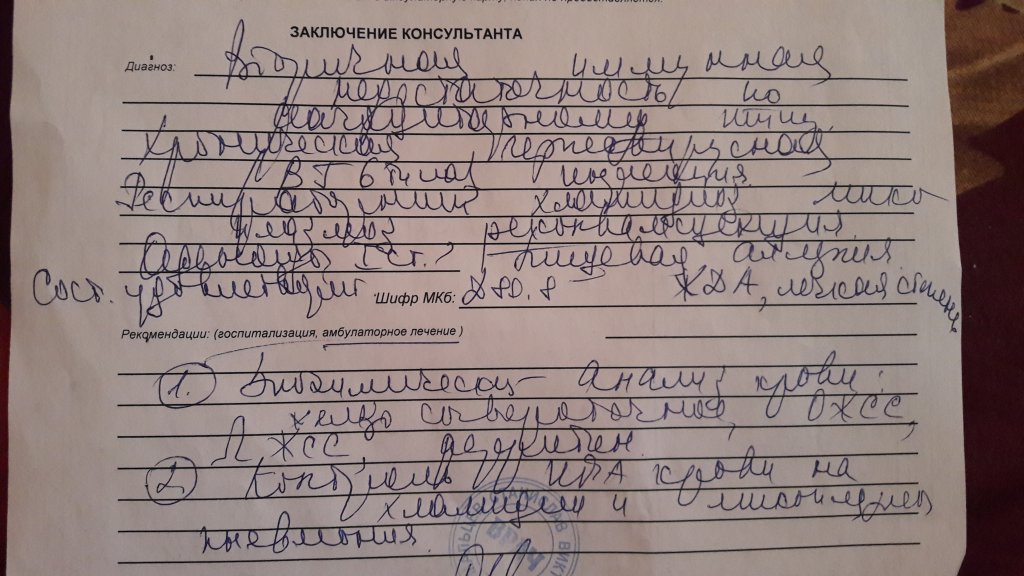 ЗАКЛЮЧЕНИЕ КОНСУЛЬТАНТА
Диагноз: Вторичная иммунная
недостаточность по
типу.
Хроническая герпесвирусная
ВГ 6 типа инфекция.
Респираторный хламидиоз, мико-
плазмоз, реконвалесценция.
Аденоиды I ст., Пищевая аллергия.
Сост. удовлетворит. Шифр МКб: Д 80.8 ЖДА, легкая степень
Рекомендации: (госпитализация, амбулаторное лечение)
1. Биохимический анализ крови:
железо сывороточное, ОЖСС,
ЛЖСС, ферритин.
2. Контроль ИФА крови на
хламидии и микоплазмы
пневмония.
ВРАЧ